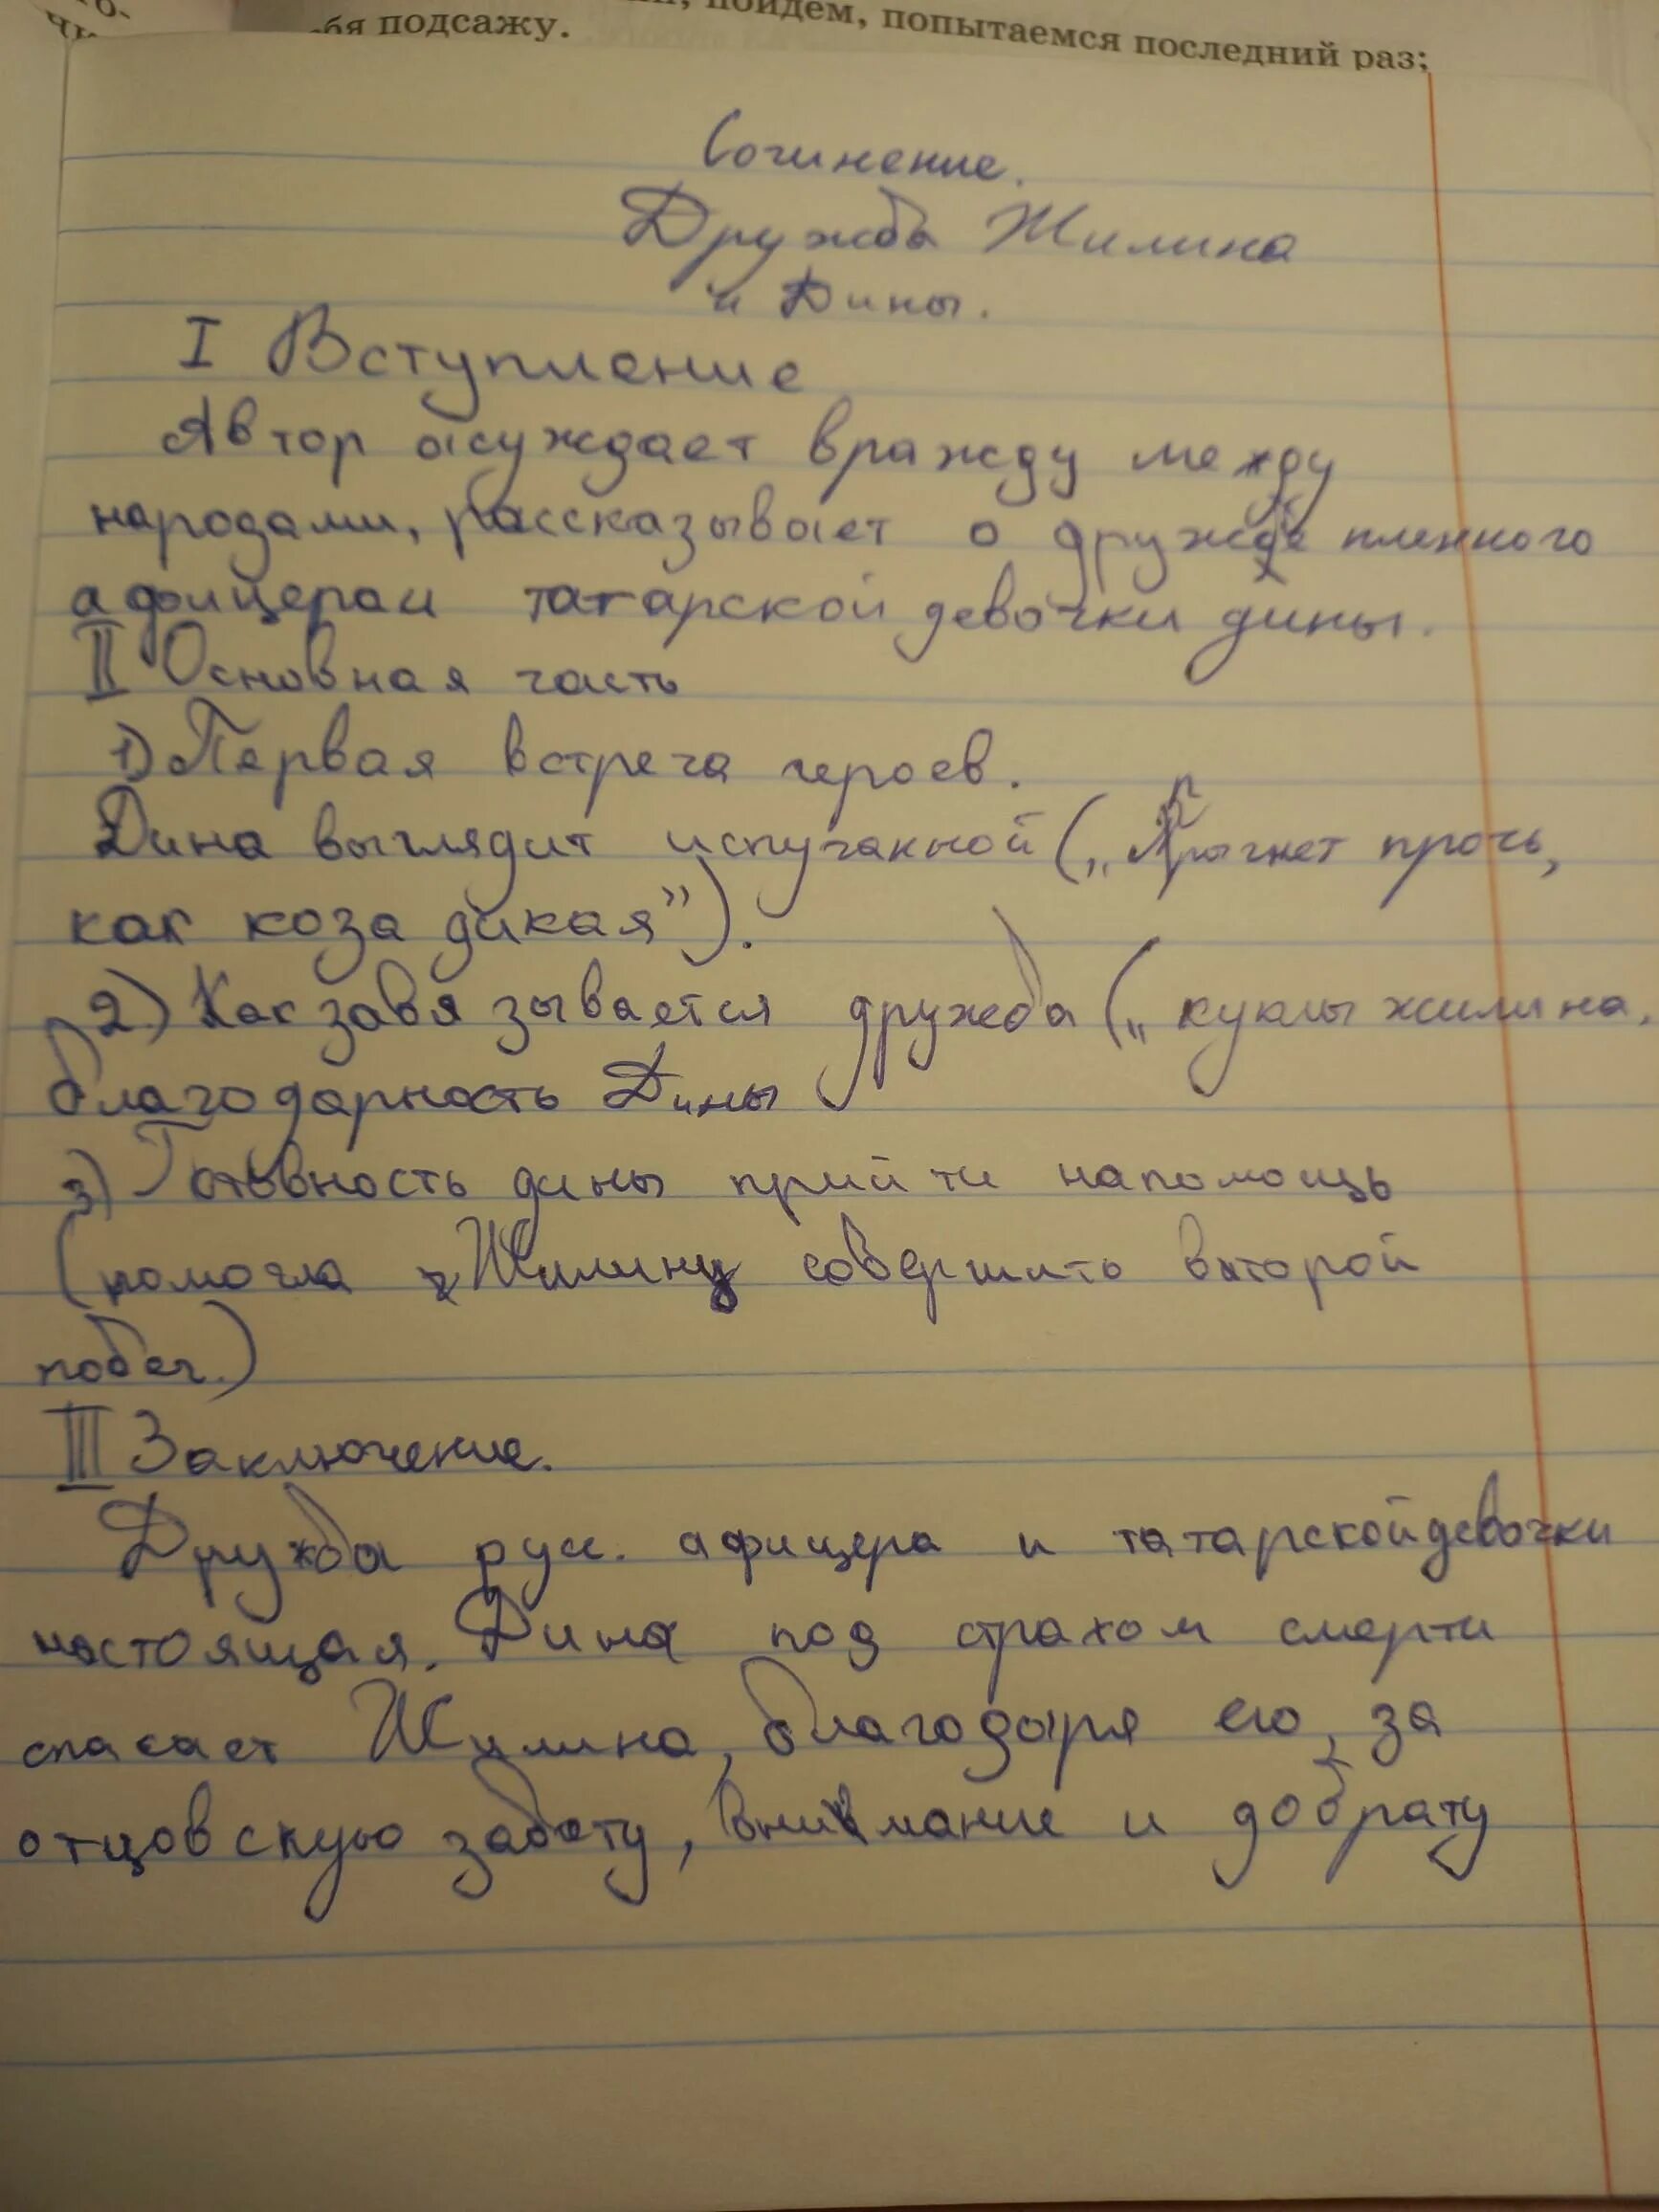 пойдем, попытаемся последний раз;
подсажу.
Сочинение.
Дружба Жилина
и Дины.
I Вступление
Автор осуждает вражду между
народами, рассказывает о дружбе пленного
афицераи татарской девочки дины.
II Основная часть
1) Первая встреча героев.
Дина выглядит испуганной („прыгнет прочь,
как коза дикая”).
2) Как завязывается дружба („куклы жилина,
благодарность Дины
3) Готовность дины прийти напомощь
(помогла Жилину совершить второй
побег.)
III Заключение.
Дружба русс. афицера и татарскойдевочки
настоящая. Дина под страхом смерти
спасает Жилина, благодаря его, за
отцовскую заботу, внимание и добрату